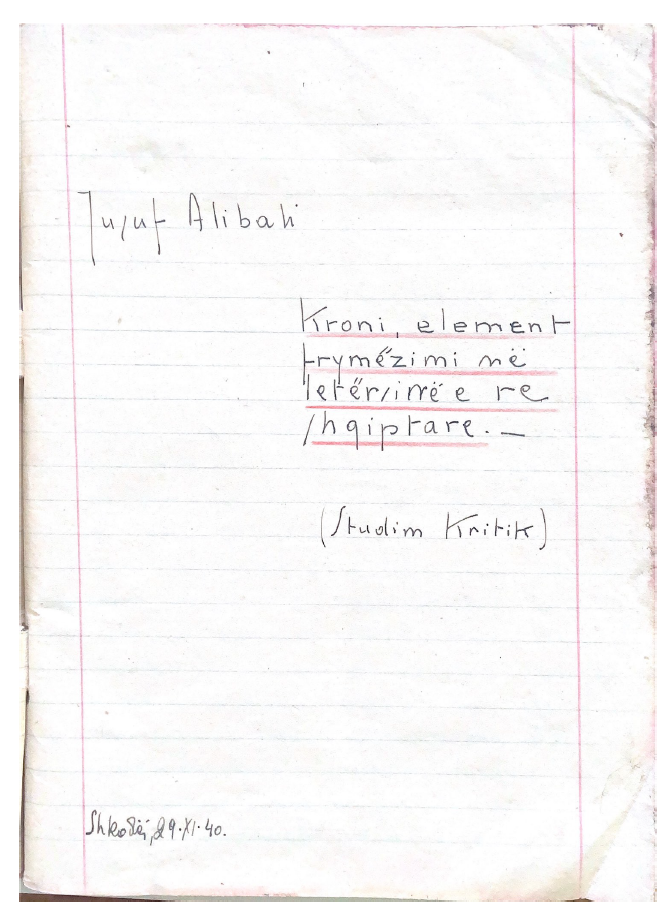 Jusuf Alibali
Kroni, element
frymëzimi në
letërsinë e re
shqiptare. —
(Studim Kritik)
Shkodër, 29.XI.40.